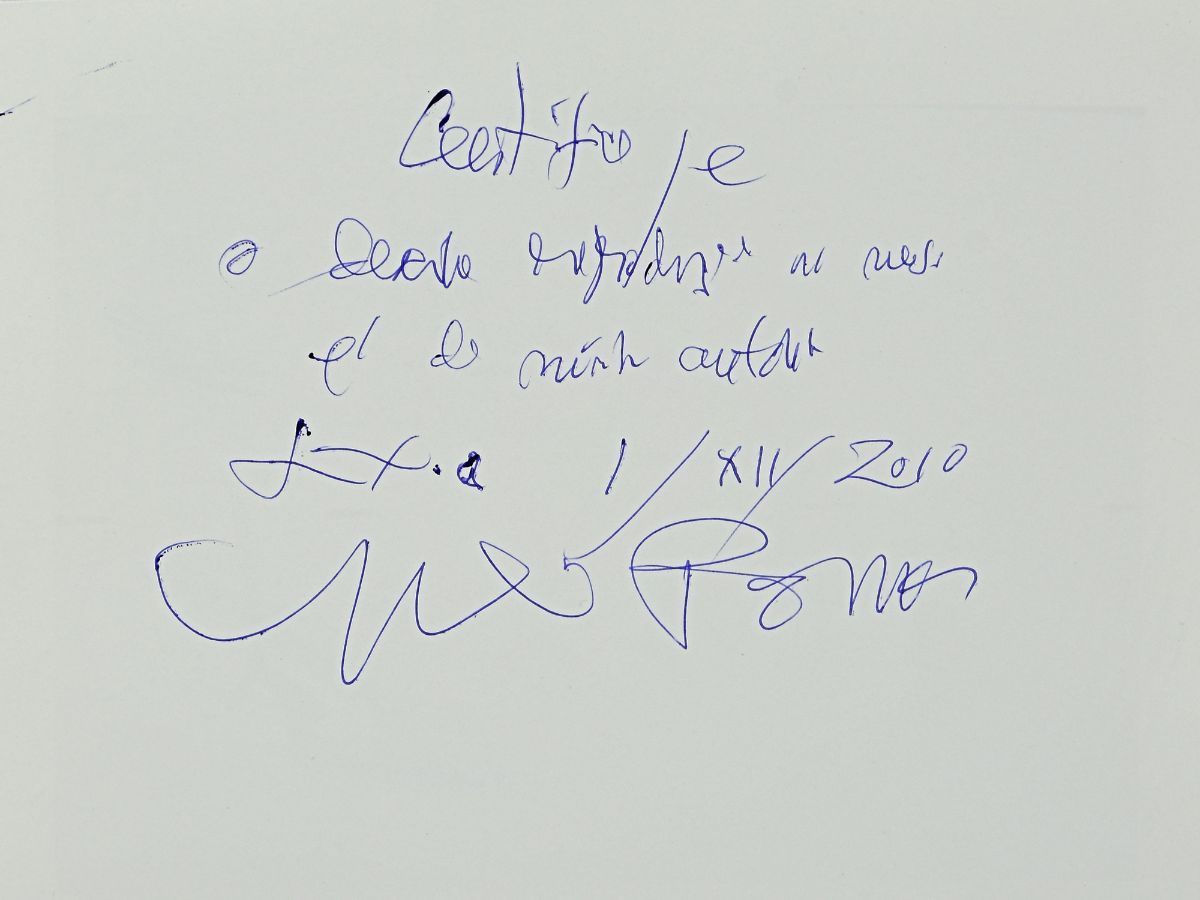 Certifico qe
o desenho reproduzido no verso
é de minha autoria
Lx.a 1/XII/2010